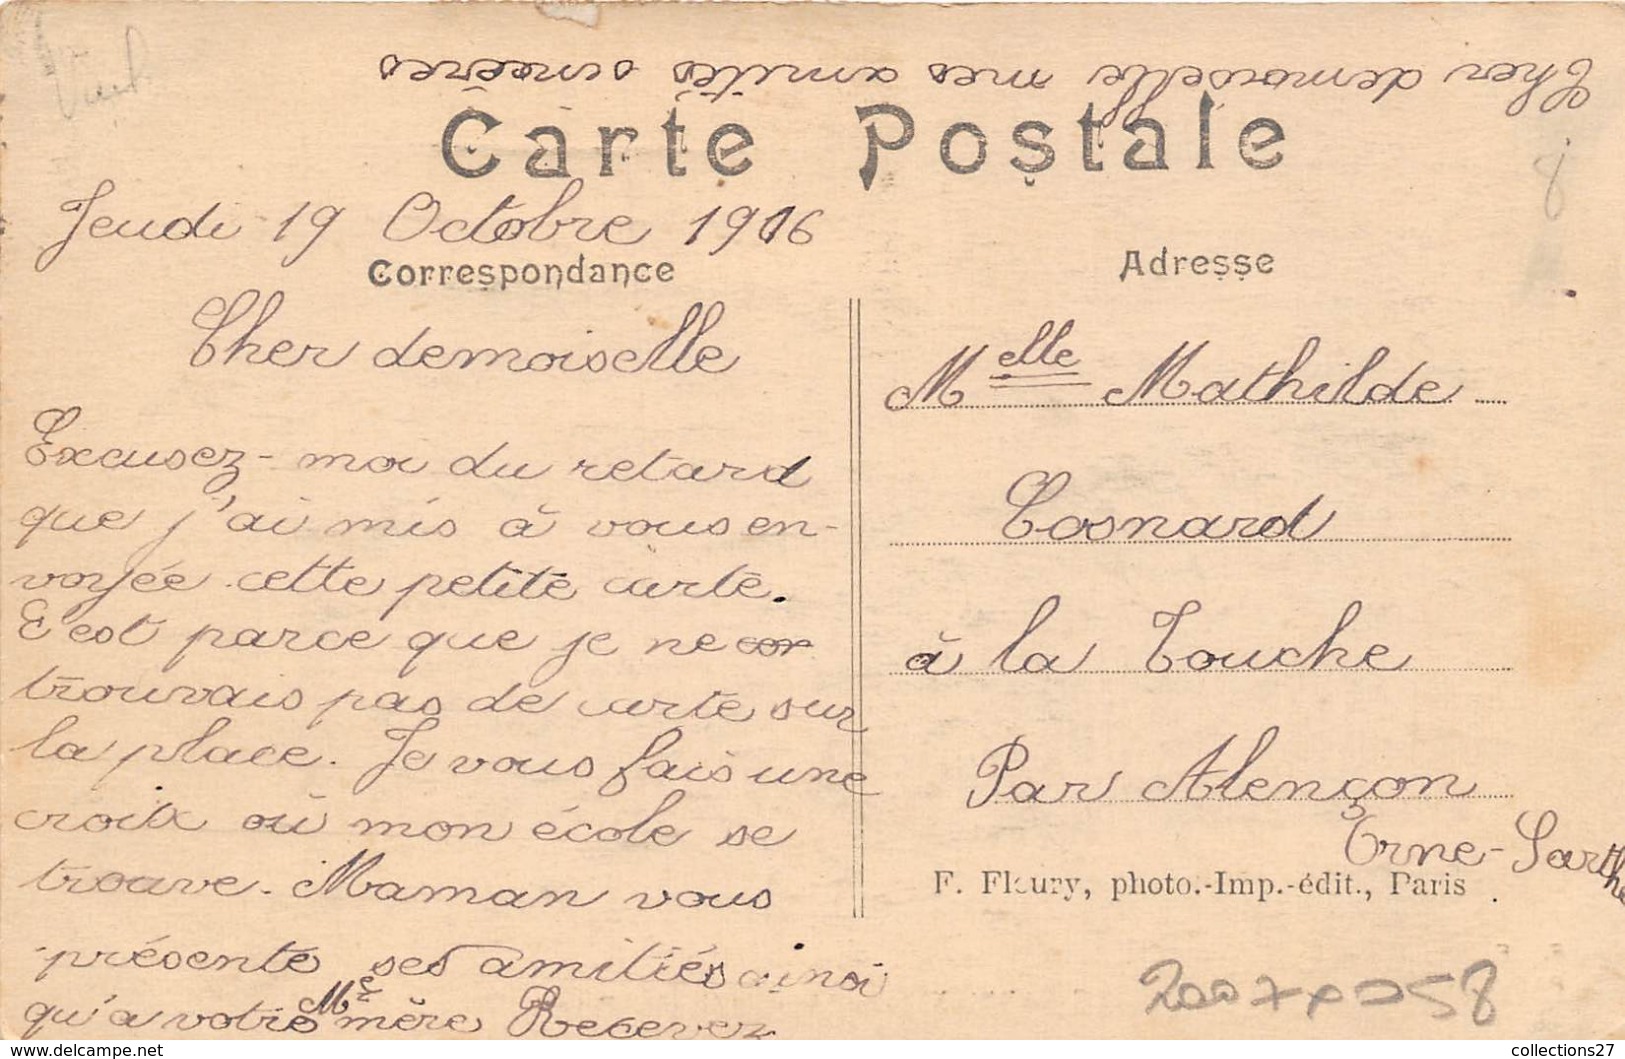 Carte Postale
Jeudi 19 Octobre 1916
Correspondance
Cher demoiselle
Excusez-moi du retard
que j'ai mis à vous en-
voyée cette petite carte.
C'est parce que je ne con
trouvais pas de carte sur
la place. Je vous fais une
croix où mon école se
trouve. Maman vous
présente ses amitiés ainsi
qu'a votre Me mère Recevez
Cher demoiselle mes amitiés sincères
Adresse
Melle Mathilde
Cosnard
à la Touche
Par Alençon
Orne-Sarthe
F. Fleury, photo.-Imp.-édit., Paris
8
collections27